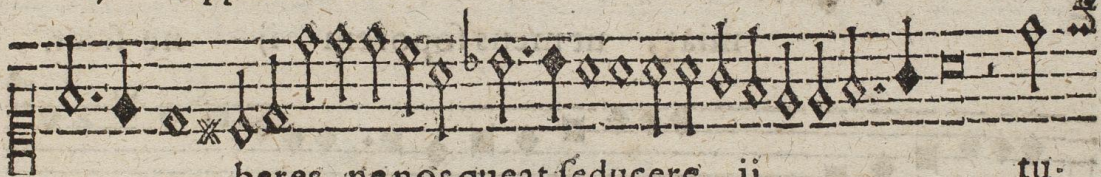 beres, ne nos queat seducere ij tu.